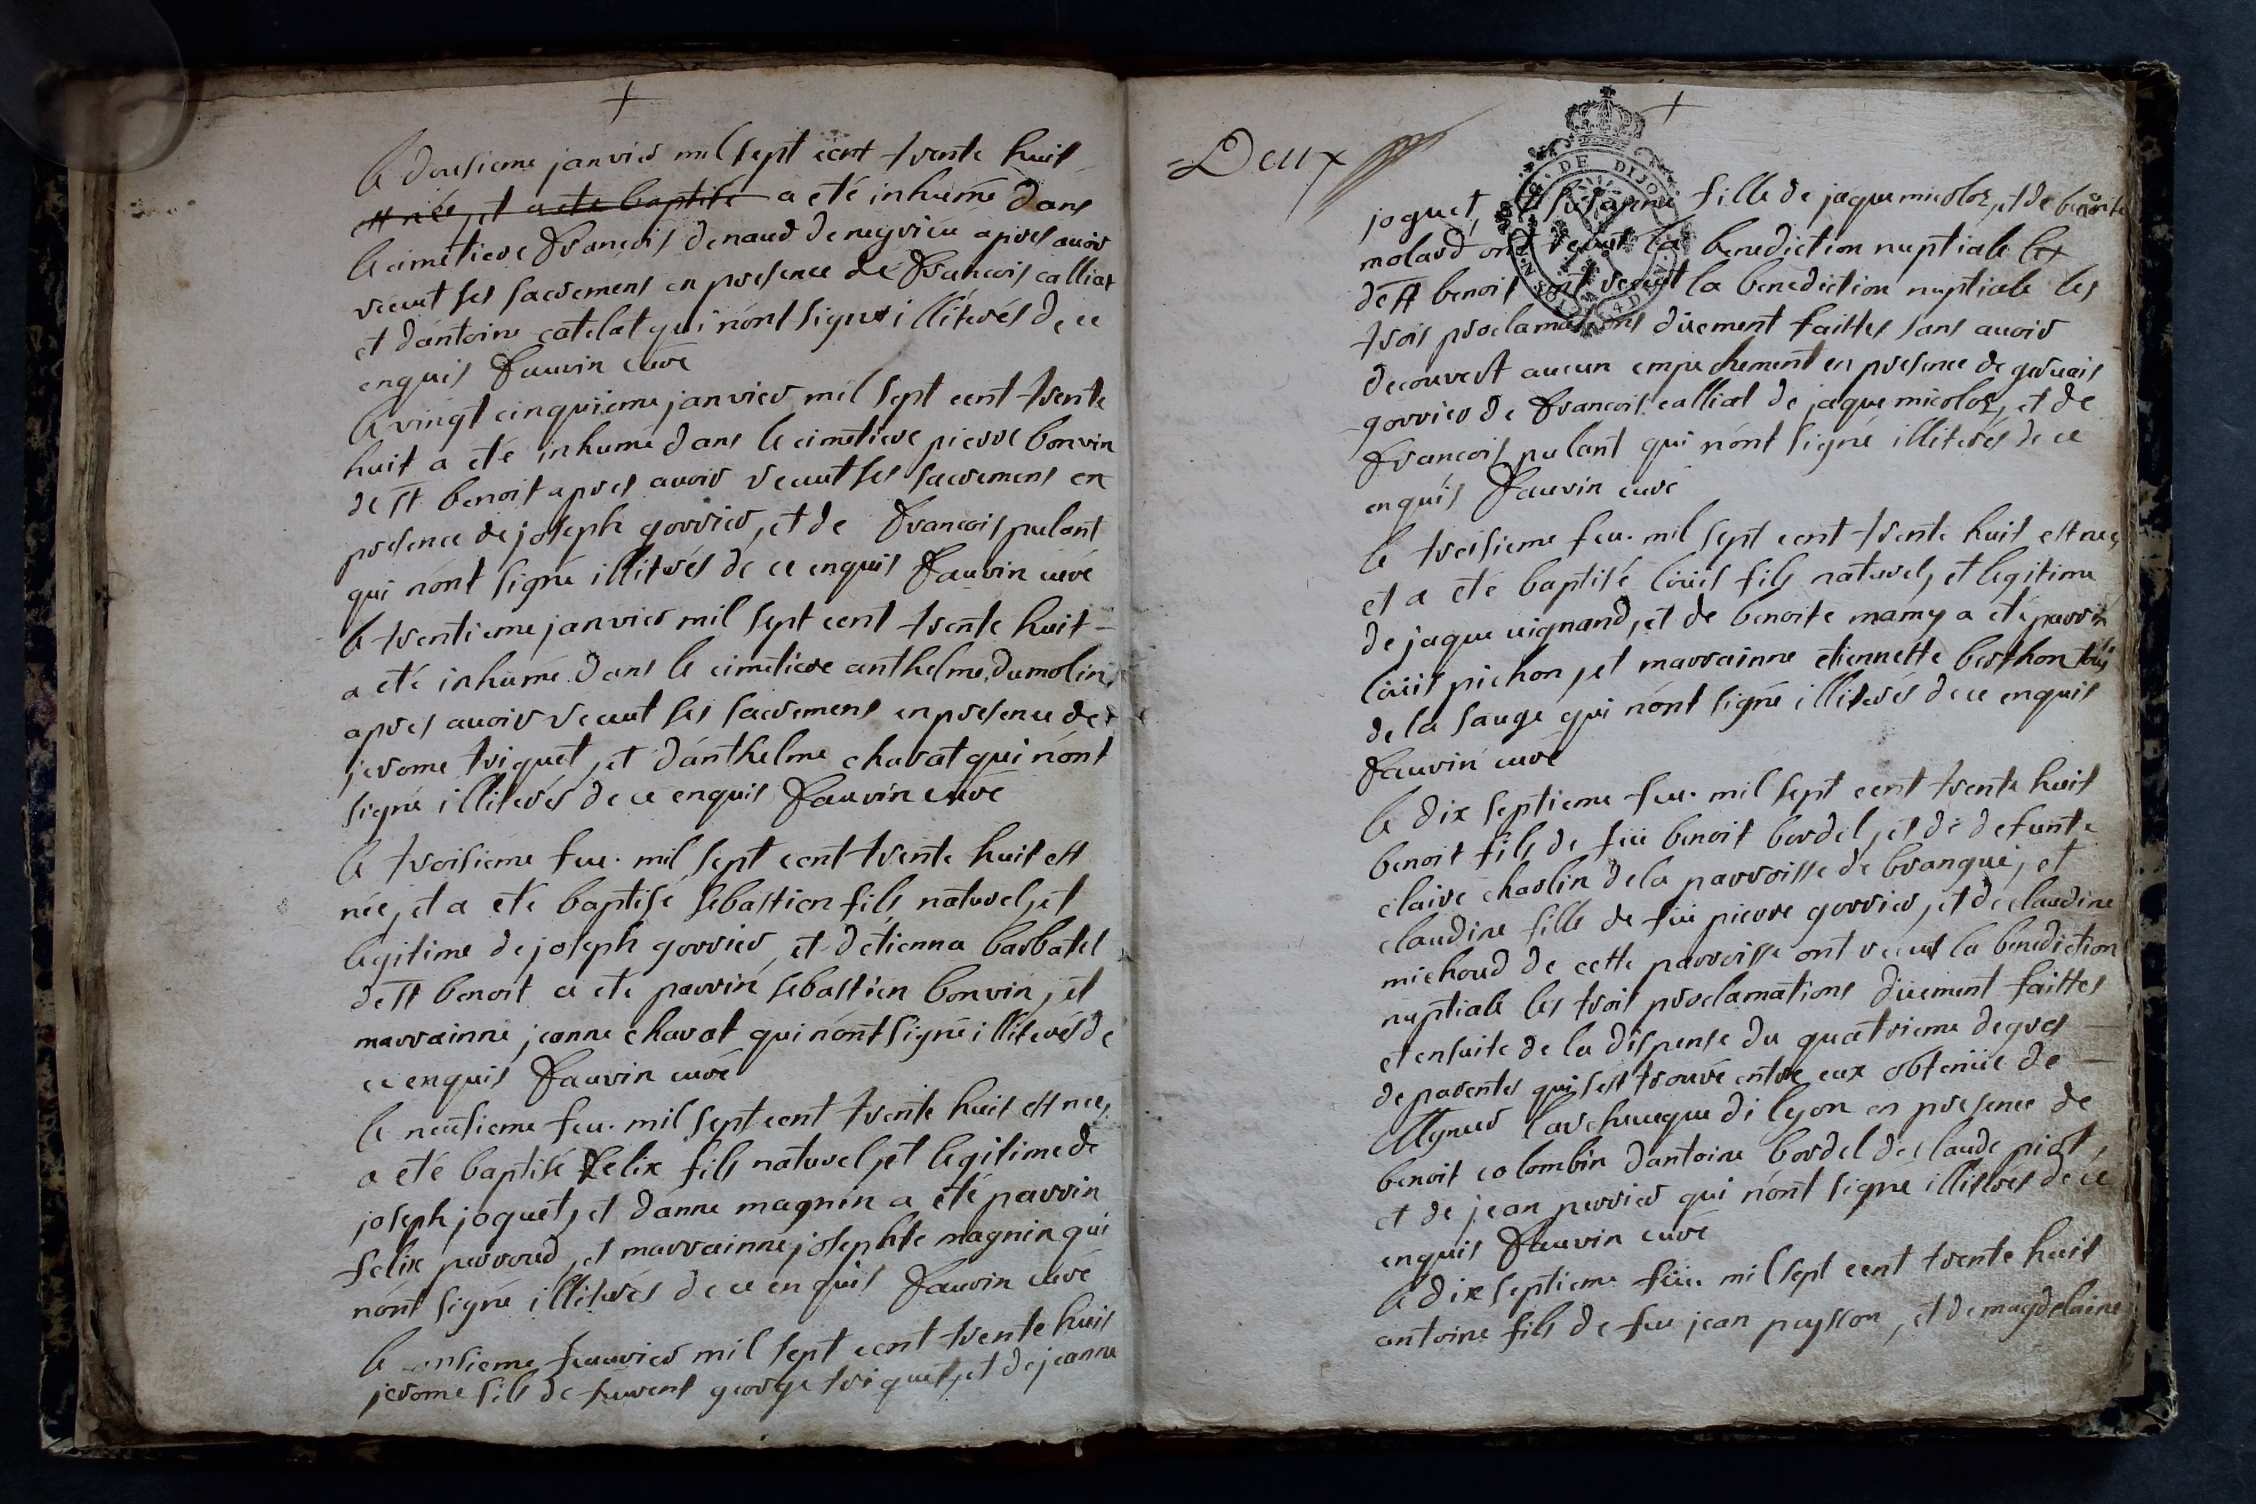 le dousieme janvier mil sept cent trente huit
est née, et a ete baptisé a eté inhumé dans
le cimetiere francois denaud de neyrieu apres avoir
recut ses sacremens en presence de francois calliat
et d'antoine catelat qui n'ont signé illiterés de ce
enquis fauvin curé
le vingt cinquieme janvier mil sept cent trente
huit a eté inhumé dans le cimetiere pierre bonvin
de st benoit apres avoir recut ses sacremens en
presence de joseph gorrier, et de francois pulant
qui n'ont signé illiterés de ce enquis fauvin curé
le trentieme janvier mil sept cent trente huit
a eté inhumé dans le cimetiere anthelme dumolin
apres avoir recut ses sacremens en presence de
jerome triquet, et d'anthelme charat qui n'ont
signé illiterés de ce enquis fauvin curé
le troisieme feu. mil sept cent trente huit est
née, et a eté baptisé sebastien fils naturel, et
legitime de joseph gorrier, et d'etienna barbatel
de st benoit a ete parrin sebastien bonvin, et
marrainne jeanne charat qui n'ont signé illiterés de
ce enquis fauvin curé
le neusieme feu. mil sept cent trente huit est née,
a eté baptisé felix fils naturel, et legitime de
joseph joquet, et d'anne magnin a eté parrin
felix perroud, et marrainne josephte magnin qui
n'ont signé illiterés de ce enquis fauvin curé
le onsieme feuvrier mil sept cent trente huit
jerome fils de george triquet, et de jeanne
Deux
DE DIJON
joquet, fille de jaque micoloz, et de benoite
molard ont recut la benediction nuptiale
de st benoit ont recut la benediction nuptiale les
trois proclamations düement faittes sans avoir
decouvert aucun empechement en presence de gervais
gorrier de francois calliat de jaque micoloz, et de
francois pulant qui n'ont signé illiterés de ce
enquis fauvin curé
le troisieme feu. mil sept cent trente huit est née,
et a eté baptisé loüis fils naturel, et legitime
de jaque vignand, et de benoite mamy a eté parrin
loüis pichon, et marrainne etiennette berthon tous
de la sauge qui n'ont signé illiterés de ce enquis
fauvin curé
le dix septieme feu. mil sept cent trente huit
benoit fils de feü benoit bordel, et de defunte
claire charlin de la parroisse de brangue, et
claudine fille de feü pierre gorrier, et de claudine
michoud de cette parroisse ont recut la benediction
nuptiale les trois proclamations düement faittes
et ensuite de la dispense du quatrieme degres
de parentes qui sest trouvé entre eux obtenüe de
Mgneur l'archeveque de lyon en presence de
benoit colombin d'antoine bordel de claude picot,
et de jean perrier qui n'ont signé illiterés de ce
enquis fauvin curé
le dix septieme feu. mil sept cent trente huit
antoine fils de feu jean puysson, et de magdelaine